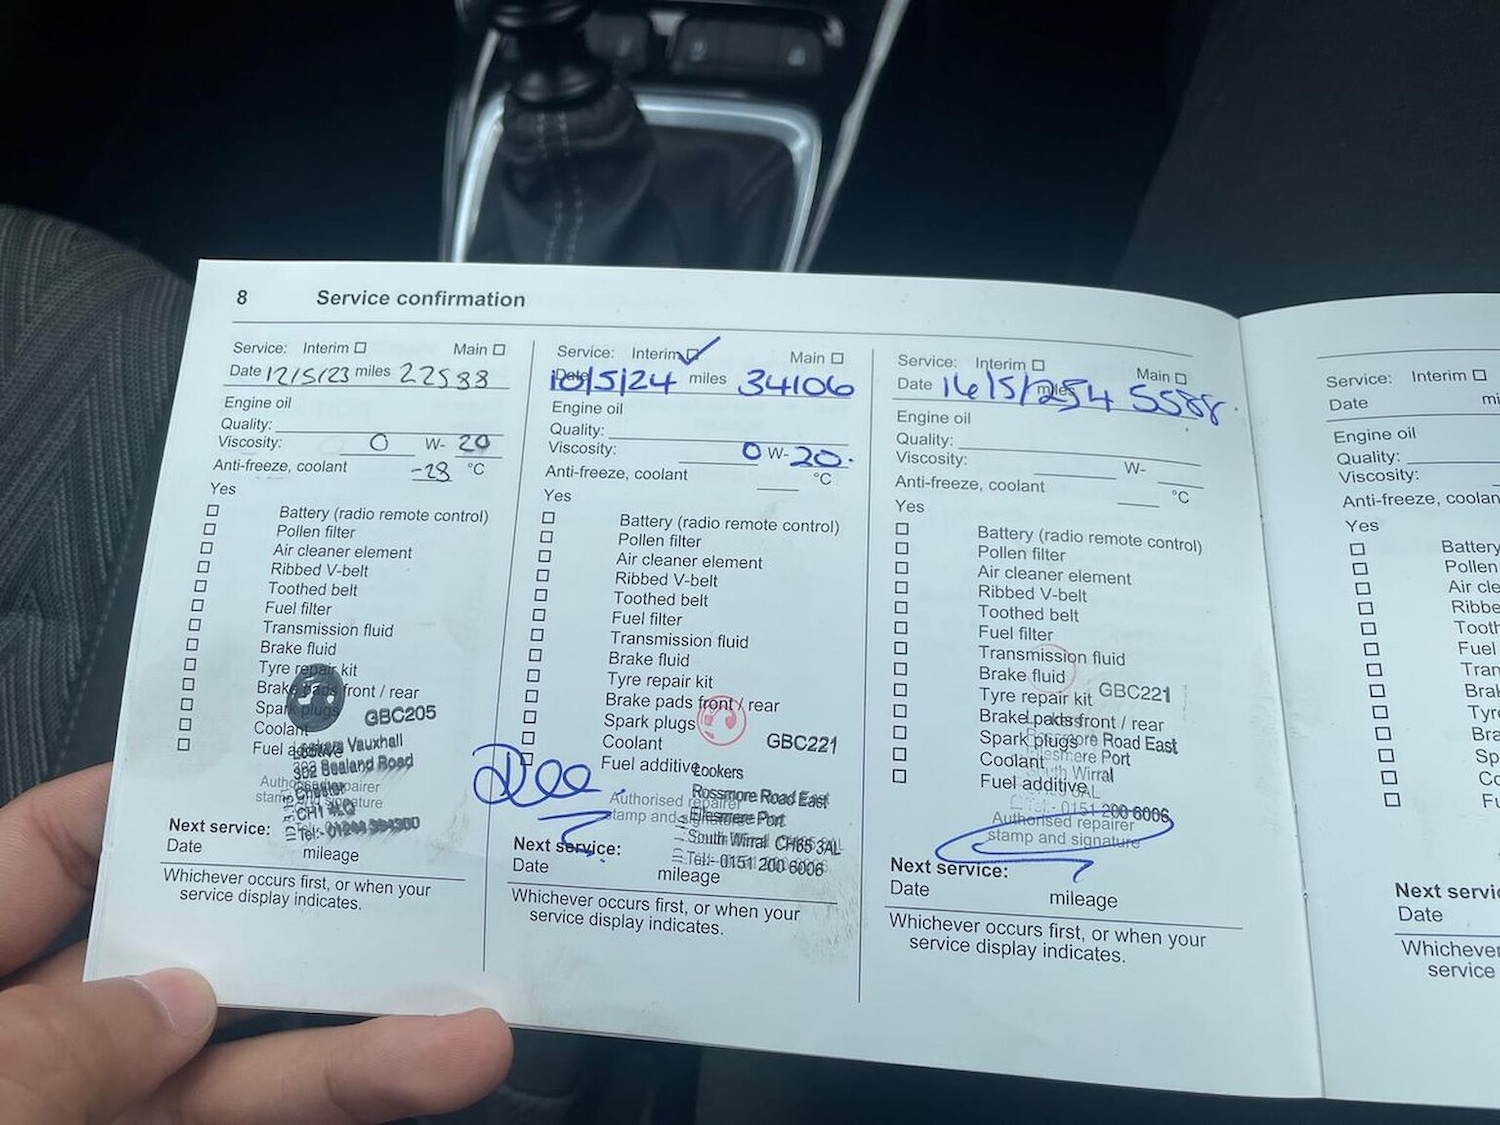 8 Service confirmation
Service: Interim Main
Date 12/5/23 miles 22588
Engine oil
Quality:
Viscosity: 0 W- 20
Anti-freeze, coolant -28 °C
Yes
Battery (radio remote control)
Pollen filter
Air cleaner element
Ribbed V-belt
Toothed belt
Fuel filter
Transmission fluid
Brake fluid
Tyre repair kit
Brake pads front / rear
Spark plugs
Coolant
Fuel additive
GBC205
Vauxhall
302 Sealand Road
Chester
CH1 4LQ
Tel:- 01244
Authorised repairer
stamp and signature
Next service:
Date mileage
Whichever occurs first, or when your
service display indicates.
Service: Interim ✓ Main
Date 10/5/24 miles 34106
Engine oil
Quality:
Viscosity: 0 W- 20.
Anti-freeze, coolant °C
Yes
Battery (radio remote control)
Pollen filter
Air cleaner element
Ribbed V-belt
Toothed belt
Fuel filter
Transmission fluid
Brake fluid
Tyre repair kit
Brake pads front / rear
Spark plugs
Coolant
Fuel additive
GBC221
Lookers
Rossmore Road East
Ellesmere Port
South Wirral CH65 3AL
Tel:- 0151 200 6006
Authorised repairer
stamp and
Next service:
Date mileage
Whichever occurs first, or when your
service display indicates.
Service: Interim Main
Date 16/5/25 miles
Engine oil
Quality:
Viscosity: W-
Anti-freeze, coolant °C
Yes
Battery (radio remote control)
Pollen filter
Air cleaner element
Ribbed V-belt
Toothed belt
Fuel filter
Transmission fluid
Brake fluid
Tyre repair kit
Brake pads front / rear
Spark plugs
Coolant
Fuel additive
GBC221
Lookers
Rossmore Road East
Ellesmere Port
South Wirral
Tel:- 0151 200 6006
Authorised repairer
stamp and signature
Next service:
Date mileage
Whichever occurs first, or when your
service display indicates.
Service: Interim
Date mi
Engine oil
Quality:
Viscosity:
Anti-freeze, coolan
Yes
Battery
Pollen
Air cle
Ribbe
Tooth
Fuel
Tran
Bral
Tyre
Bra
Sp
Co
Fu
Next servic
Date
Whichever
service